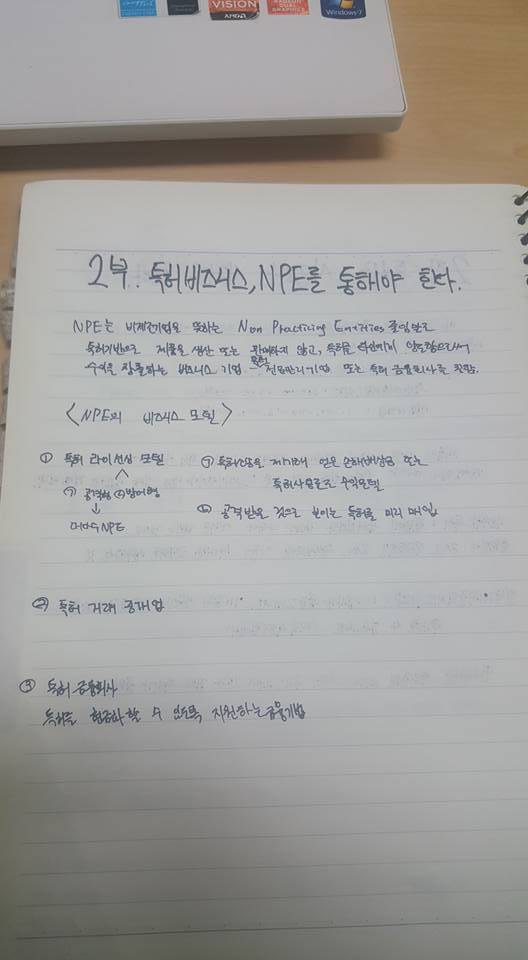 VISION
AMD
RADEON
DUAL
GRAPHICS
Windows 7
2부. 특허비즈니스, NPE를 통해야 한다.
NPE는 비제조기업을 뜻하는 Non Practicing Entities 줄임말로
특허기반으로 제품을 생산 또는 판매하지 않고, 특허를 타인에게 양도함으로써
수익을 창출하는 비즈니스 기업 특허 전문관리기업 또는 특허 금융회사를 칭함.
<NPE의 비즈니스 모델>
① 특허 라이선싱 모델
㉠ 공격형 ㉡ 방어형
↓
대다수 NPE
㉠ 특허소송을 제기해 얻은 손해배상금 또는
특허사용료로 수익모델
㉡ 공격받을 것으로 보이는 특허를 미리 매입
② 특허 거래 중개업
③ 특허 금융회사
특허를 현금화 할 수 있도록 지원하는 금융기법